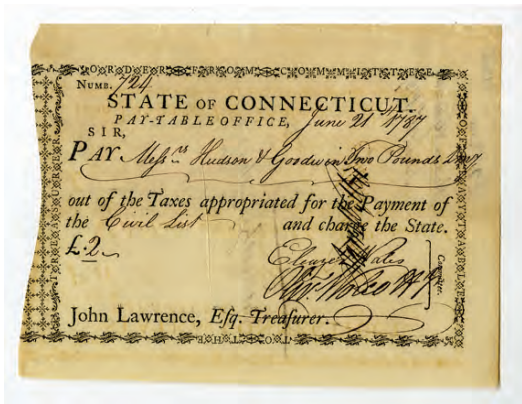 ORDER FROM COMMITTEE
NUMB. 724
STATE OF CONNECTICUT.
PAY-TABLE OFFICE, June 21 1787
SIR,
PAY Messrs Hudson & Goodwin Two Pounds
out of the Taxes appropriated for the Payment of
the Civil List and charge the State.
£.2
Eleazer Wales
Committee.
John Lawrence, Esq. Treasurer.